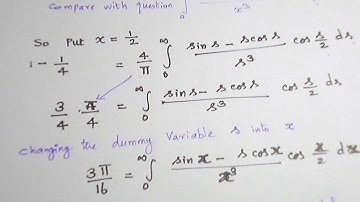 Compare with question ∫₀ x³
So Put x = 1/2
1 - 1/4 = 4/π ∫₀^∞ (sin s - s cos s)/s³ cos s/2 ds
3/4 · π/4 = ∫₀^∞ (sin s - s cos s)/s³ cos s/2 ds
Changing the dummy Variable s into x
3π/16 = ∫₀^∞ (sin x - x cos x)/x³ cos x/2 dx